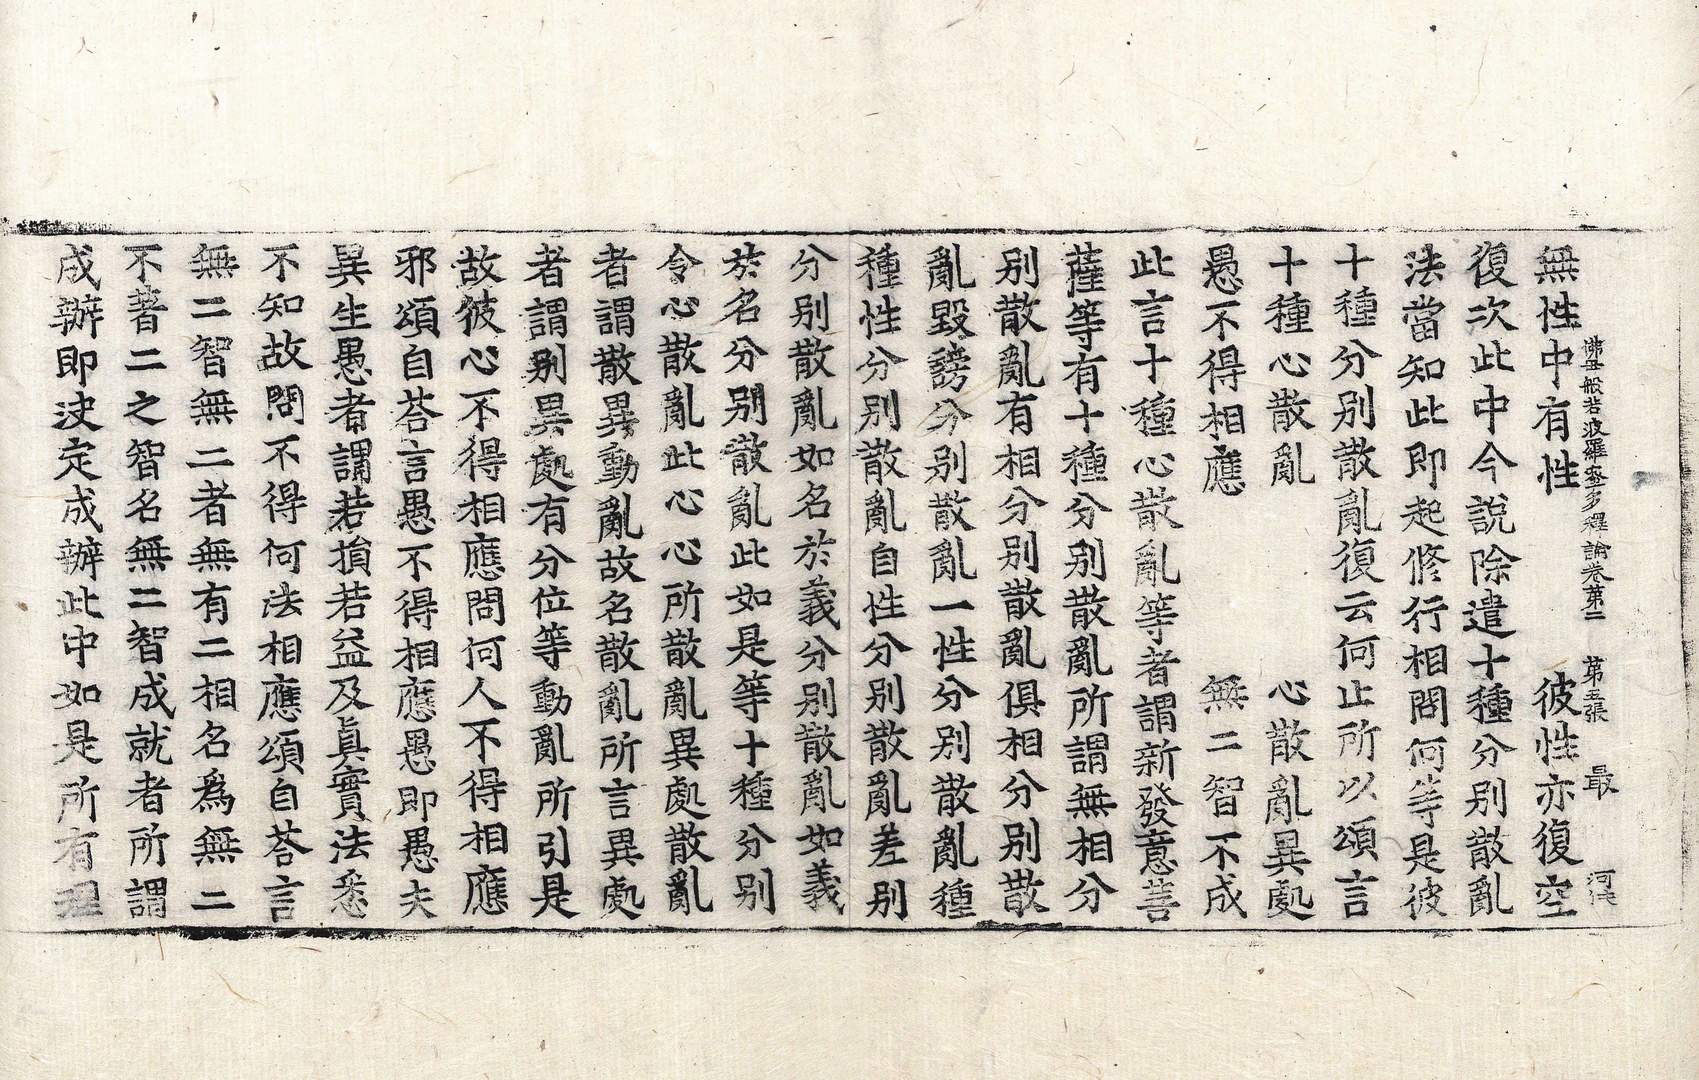 佛母般若波羅蜜多釋論卷第二 第五張 最
無性中有性 彼性亦復空
復次此中今說除遣十種分別散亂
法當知此即起修行相問何等是彼
十種分別散亂復云何止所以頌言
十種心散亂 心散亂異處
愚不得相應 無二智不成
此言十種心散亂等者謂新發意菩
薩等有十種分別散亂所謂無相分
別散亂有相分別散亂俱相分別散
亂毀謗分別散亂一性分別散亂種
種性分別散亂自性分別散亂差別
分別散亂如名於義分別散亂如義
於名分別散亂此如是等十種分別
令心散亂此心心所散亂異處散亂
者謂散異動亂故名散亂所言異處
者謂別異處有分位等動亂所引是
故彼心不得相應問何人不得相應
邪頌自荅言愚不得相應愚即愚夫
異生愚者謂若損若益及眞實法悉
不知故問不得何法相應頌自荅言
無二智無二者無有二相名爲無二
不著二之智名無二智成就者所謂
成辦即決定成辦此中如是所有理